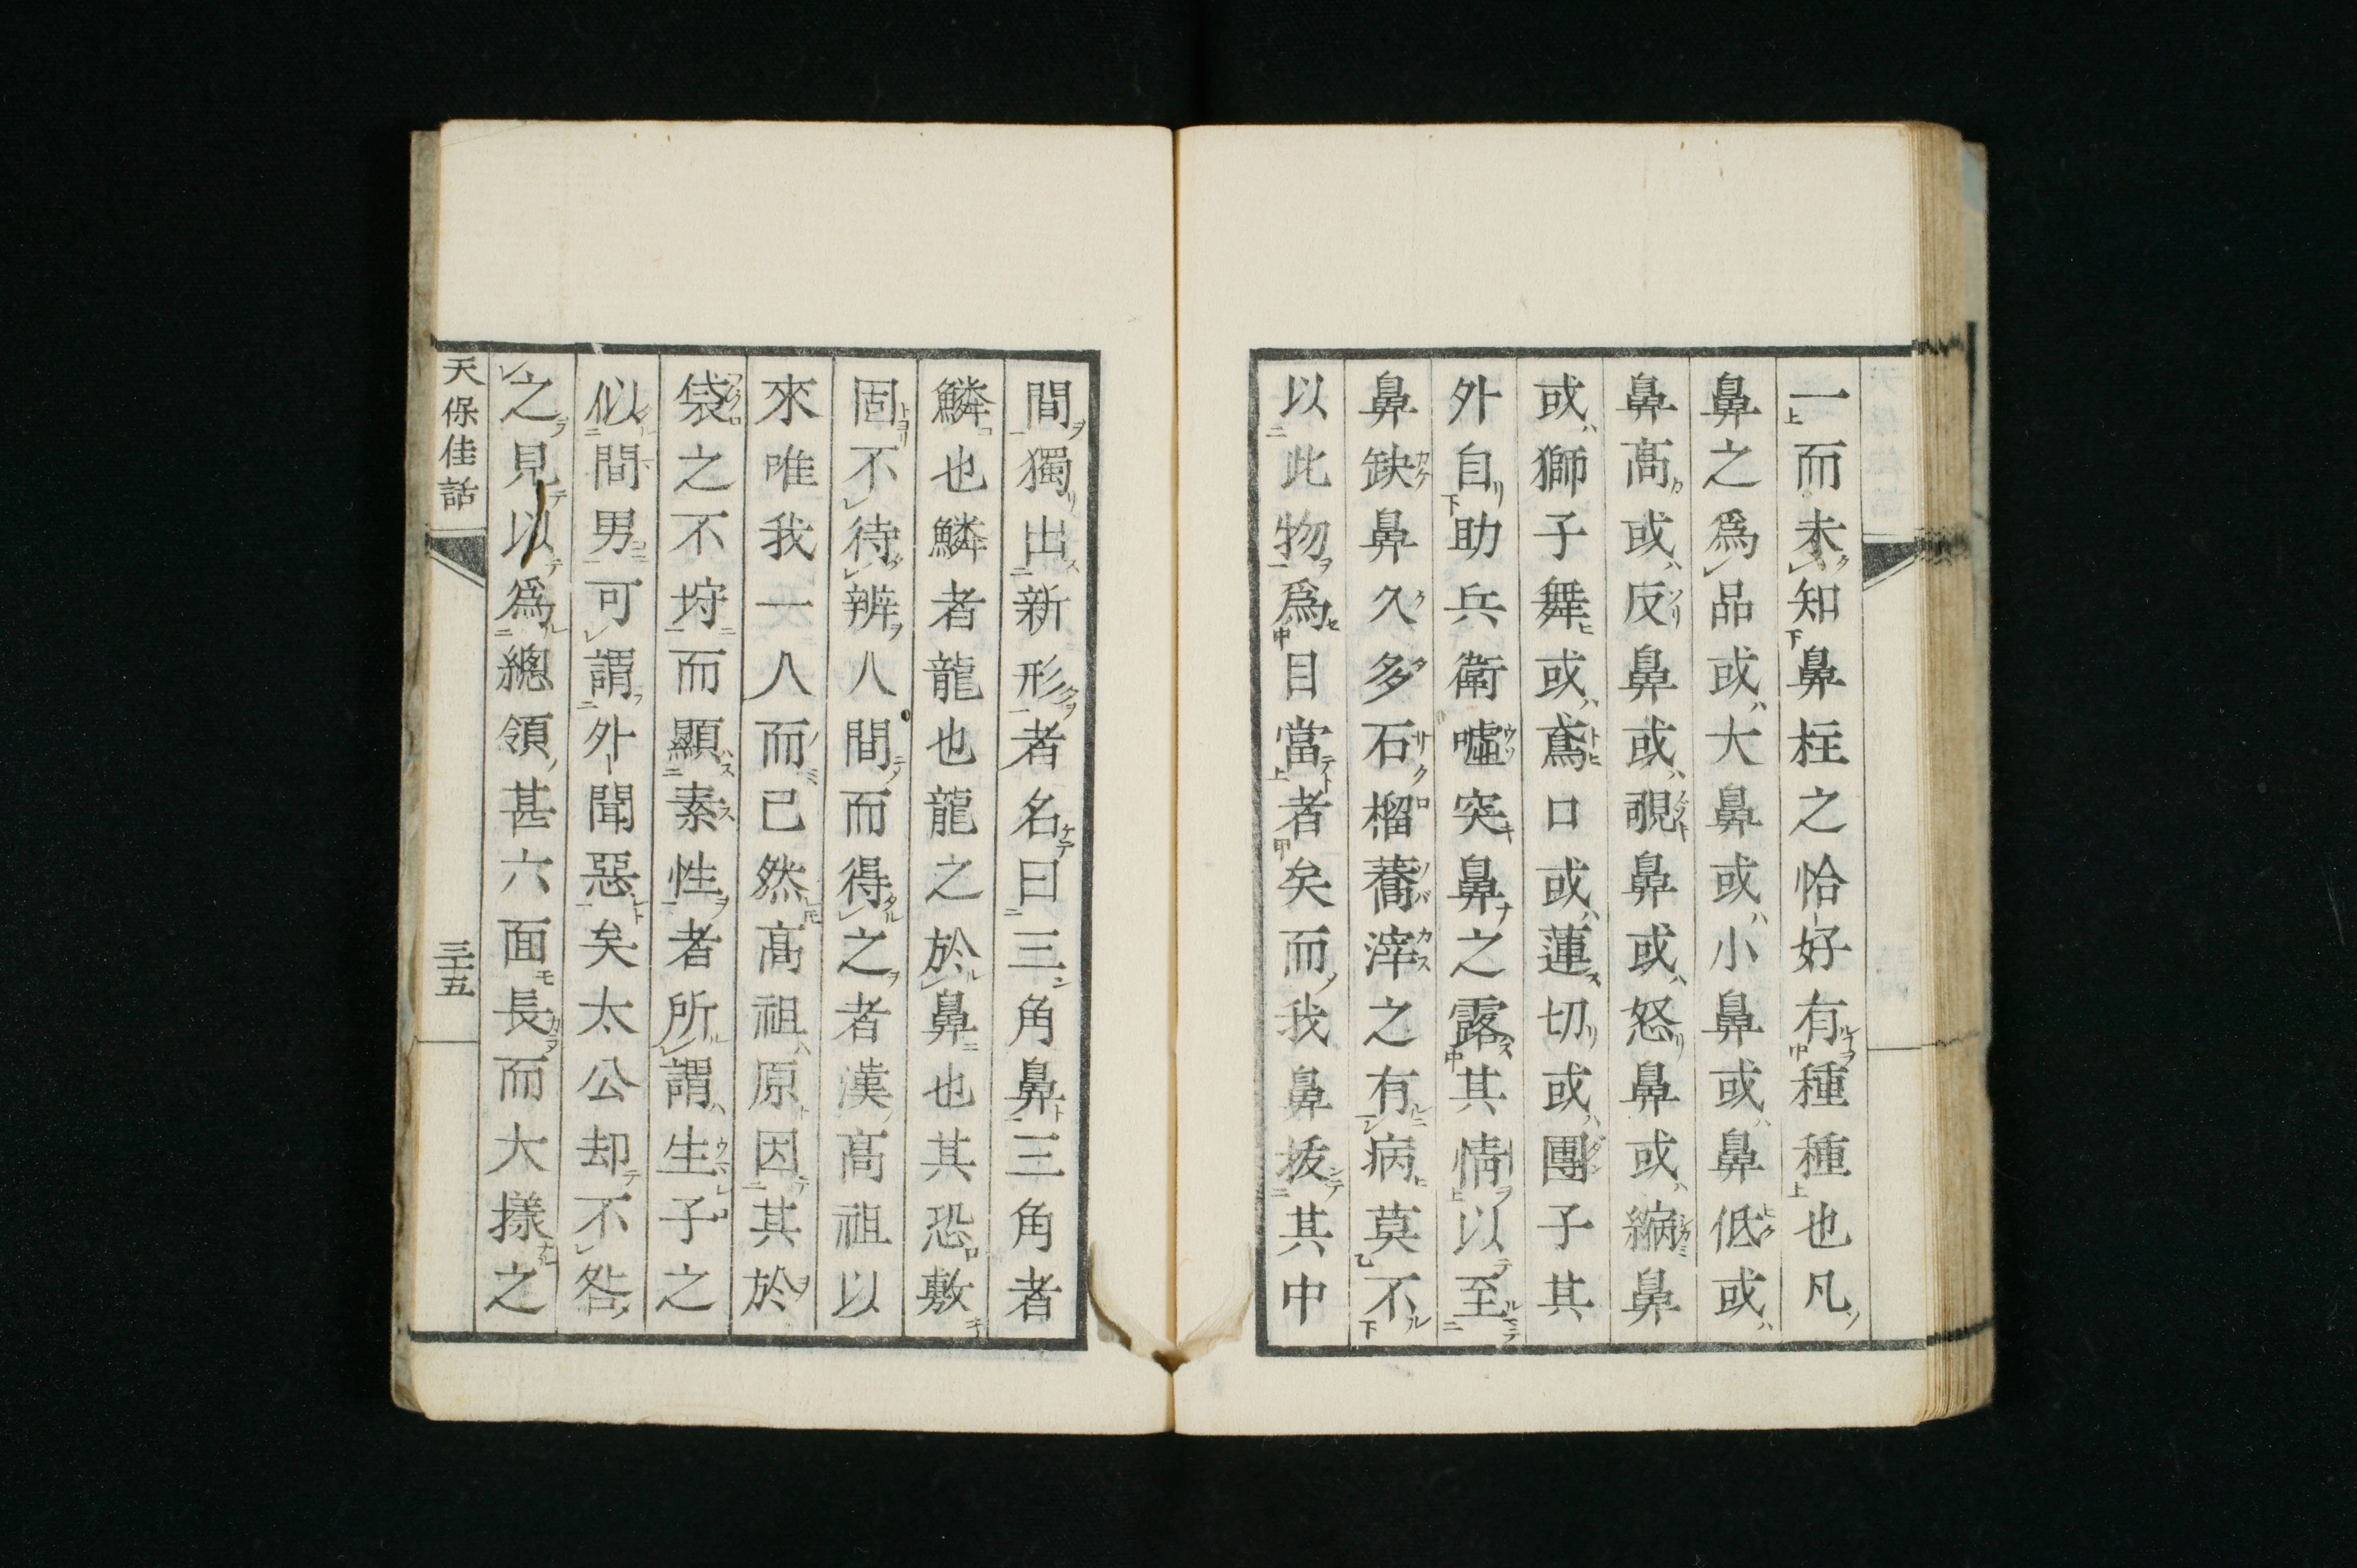 一而未知鼻柱之恰好有種種也凡
鼻之為品或大鼻或小鼻或鼻低或
鼻高或反鼻或覗鼻或怒鼻或縮鼻
或獅子舞或鳶口或蓮切或團子其
外自助兵衛嘘突鼻之露其情以至
鼻缺鼻久多石榴蕎滓之有病莫不
以此物為目當者矣而我鼻抜其中
間獨出新形者名曰三角鼻三角者
鱗也鱗者龍也龍之於鼻也其恐敷
固不待辨人間而得之者漢高祖以
來唯我一人而已然高祖原因其於
袋之不埓而顯素性者所謂生子之
似間男可謂外聞惡矣太公却不咎
之見以為總領甚六面長而大樣之
天保佳話
三十五